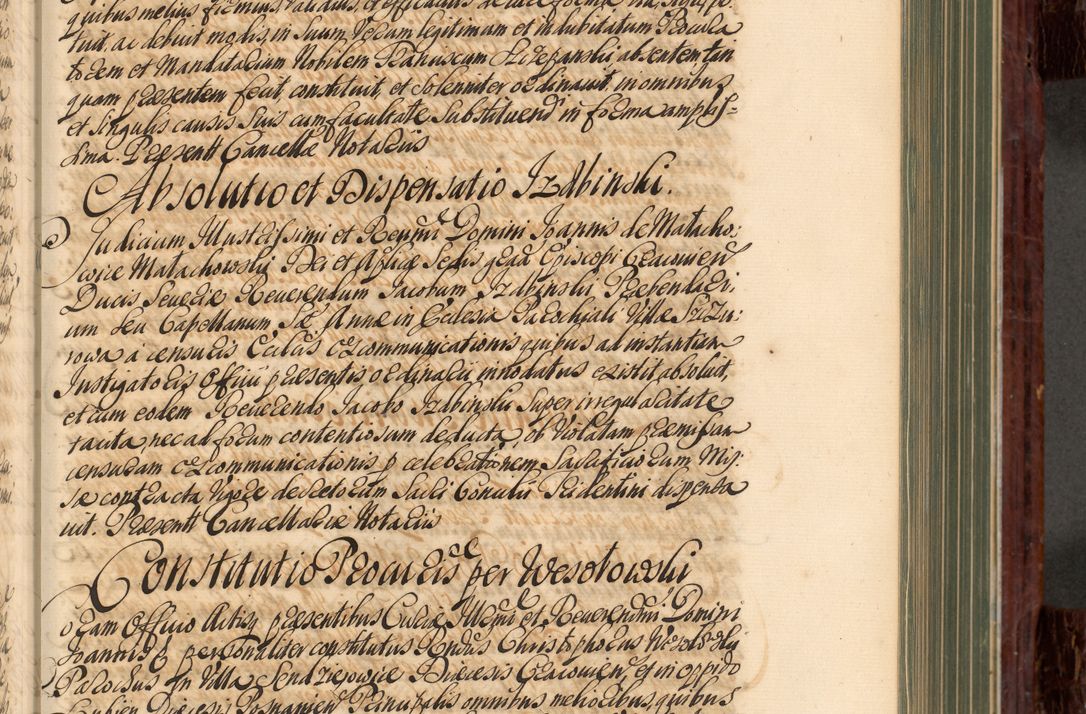 quibus melius firmius, validius, et efficacius de iure forma via, 
tuit, ac debuit melis, in suum, Verum legitimum et indubitatum Procura
torem et Mandatarium Nobilem Franciscum Szczepanski, absentem tan
quam praesentem fecit, constituit, et solenniter ordinavit, in omnibus
et singulis causis suis cum facultate substituend in forma amplis-
sima. Praesentt Cancellae Notariis
Absolutio et Dispensatio Izdbinski.
Judicium Illustrissimi et Reveri Domini Joannis de Matacho-
wice Matachowski Dei et Aplicae Sedis gratia Episcopi Cracovien
Ducis Severiae Reverendum Jacobum Izdbinski Praebendari-
um seu Capellanum Stae Annae in Ecclesia Parochiali Villae Szczu-
rowa a censuris Ecclis excommunicationis quibus ad instantiam
Instigatoris Officii praesentis, ordinarii innodatus existit, absolvit,
et cum eodem Reverendo Jacobo Izdbinski super irregularitate
tacita, nec ad forum contentiosum deducta, ob violatam praemissam
censuram excommunicationis p celebrationem Sacrificiorum Mis-
sae contracta vigore decretorum Sacri Concilii Tridentini dispensa
vit. Praesentt Cancellariae Notariis
Constitutio Procuris per Wesołowski
oram Officio Actisq praesentibus Curiae Illmi et Reverendmi Domini
Joannis personaliter constitutus Rndus Christophorus Wesołowski
Parochus in Villa Sendziejowice Diecesis Cracovien, et in oppido
Lubien Diecesis Posnanien Principalis omnibus melioribus, quibus